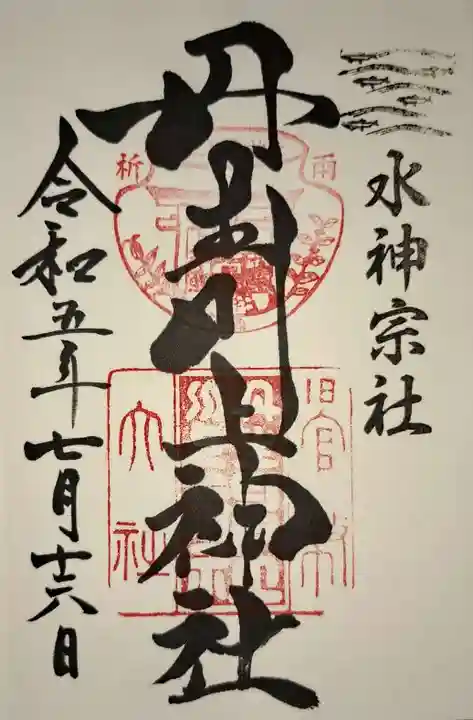 水神宗社
丹生川上神社
令和五年七月十六日
雨
祈
旧官幣
大社